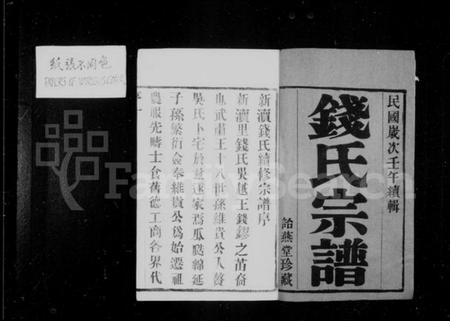 紙張不同色
PAPERS OF VARIOUS COLORS
民國歲次壬午續輯
錢氏宗譜
詒燕堂珍藏
新瀆錢氏續修宗譜序
新瀆里錢氏吳越王錢鏐之苗裔
也武肅王十八世孫維貴公入贅
吳氏卜宅於茲遂家焉瓜瓞綿延
子孫繁衍僉奉維貴公為始遷祖
農服先疇士食舊德工商各界代
FamilySearch